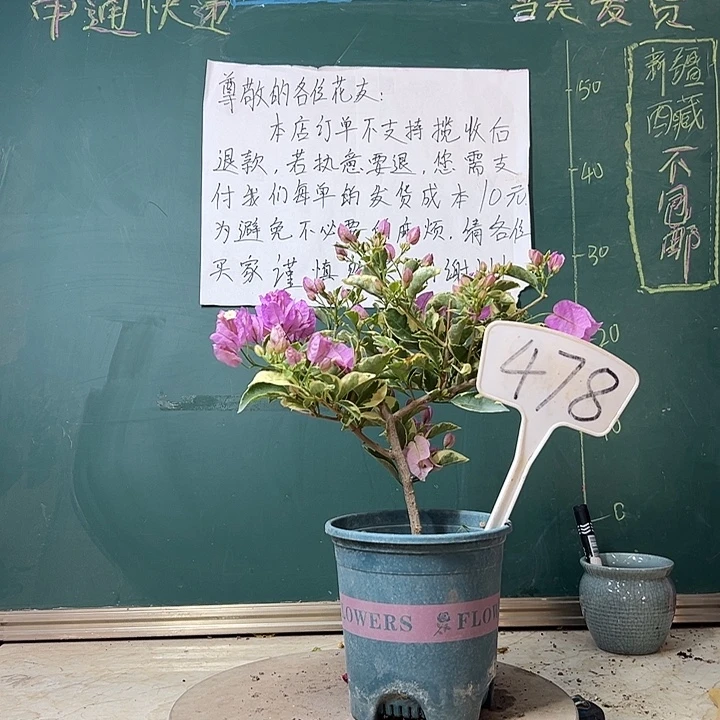 申通快递
当天发货
尊敬的各位花友:
本店订单不支持揽收后
退款,若执意要退,您需支
付我们每单的发货成本10元
为避免不必要的麻烦.请各位
买家谨慎
谢
新疆
西藏
不包邮
50
40
30
20
0
478
LOWERS
FLOW